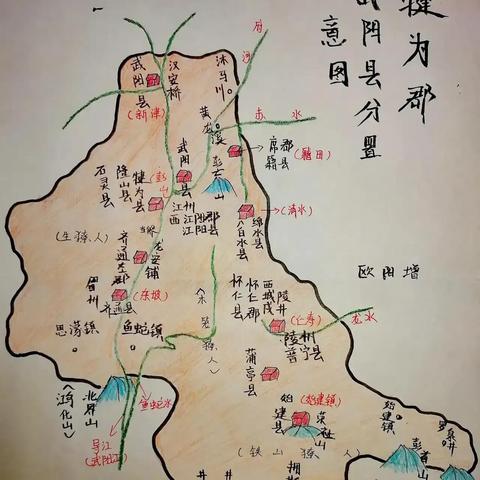 犍为郡
武阴县分置
意图
欧阳增
府河
沐马川
汉安桥
武阳县
(新津)
黄龙溪
赤水
席郡
籍县
(籍田)
武阳县
彭女山
石灵县
隆山县
犍为县
(彭山)
江州
西江阳郡
江阳县
绵水县
白水县
(清水)
(生獠人)
龙安铺
齐通左郡
眉州
齐通县
(东坡)
怀仁郡
怀仁县
西城戍
陵井
(仁寿)
龙水
陵州
普宁县
思濛镇
鱼蛇镇
蒲亭县
北界山
鱼蛇水
始建县
(始建镇)
始建镇
铁山獠人
导江
(武阳江)